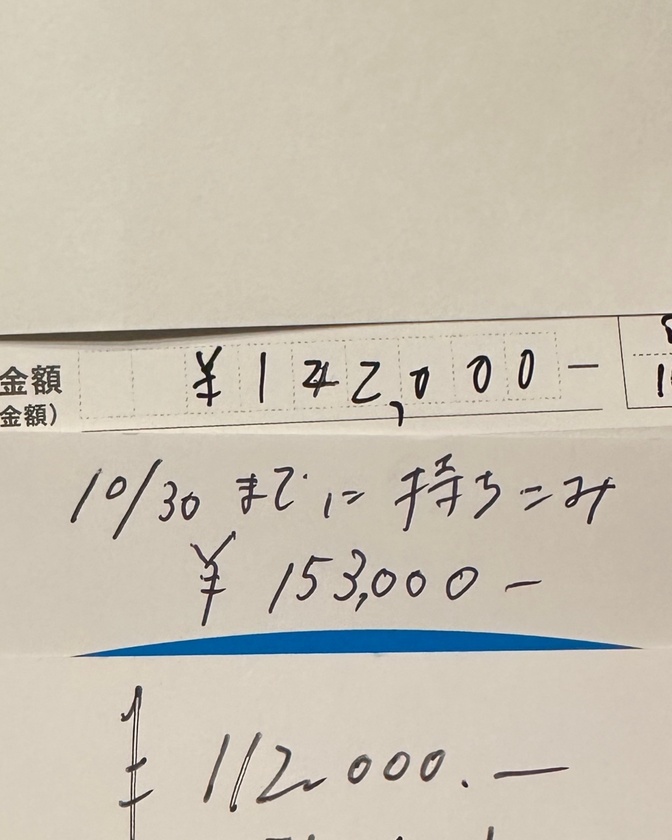 金額 ¥142,000-
金額)
10/30 までに 持ちこみ
¥ 153,000-
¥ 112,000.-